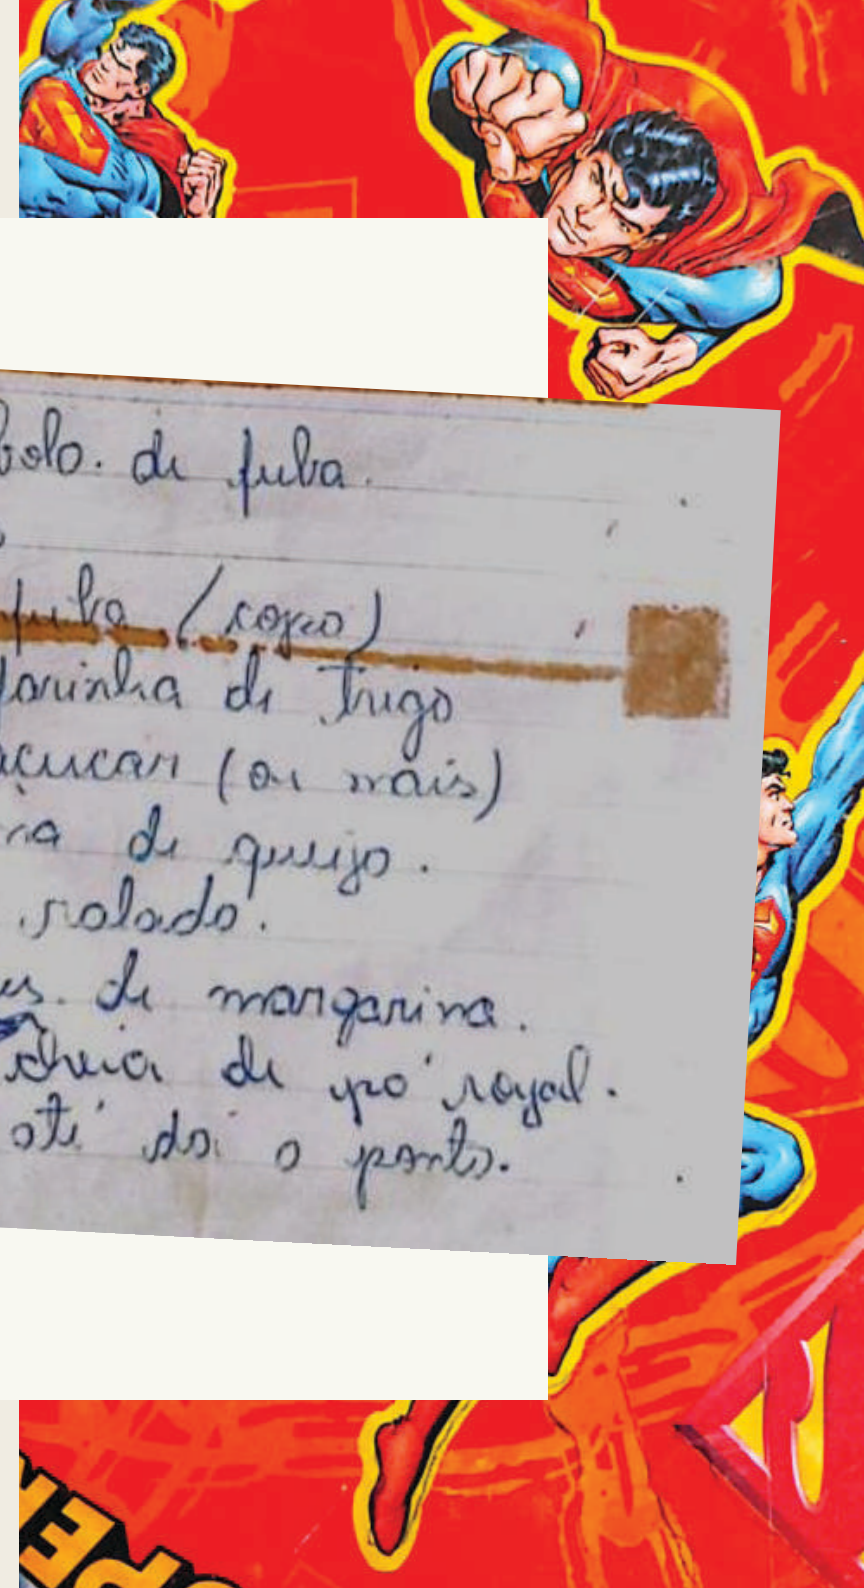 bolo. de fuba.
fuba (copo)
farinha de trigo
açucar (ou mais)
de queijo.
ralado.
de margarina.
cheia de pó royal.
até da o ponto.